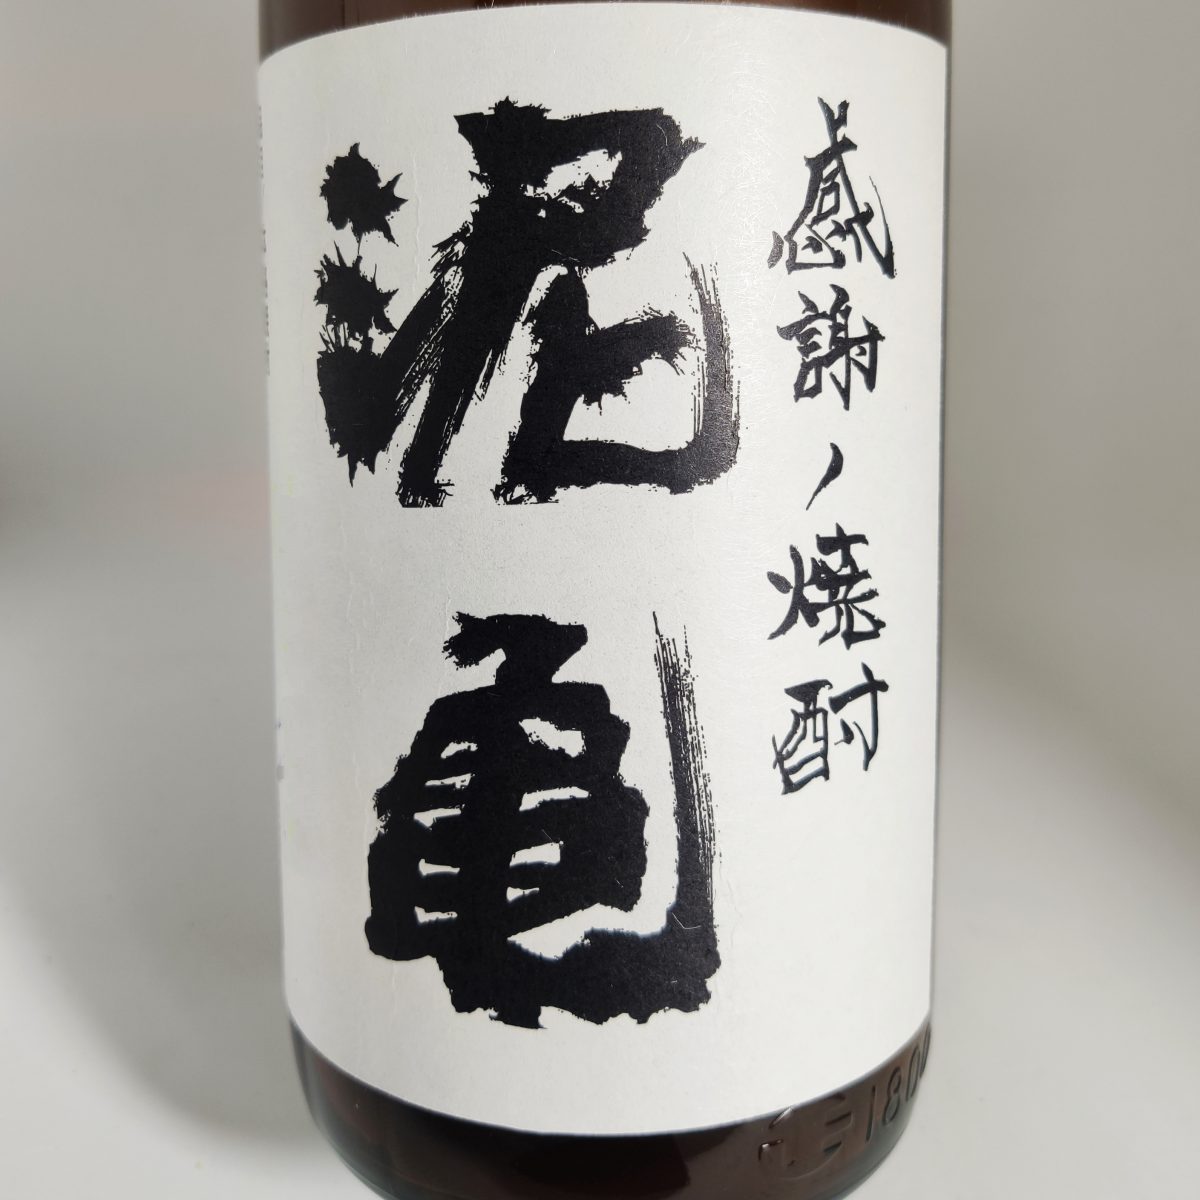 感謝ノ焼酎
泥亀
正1800